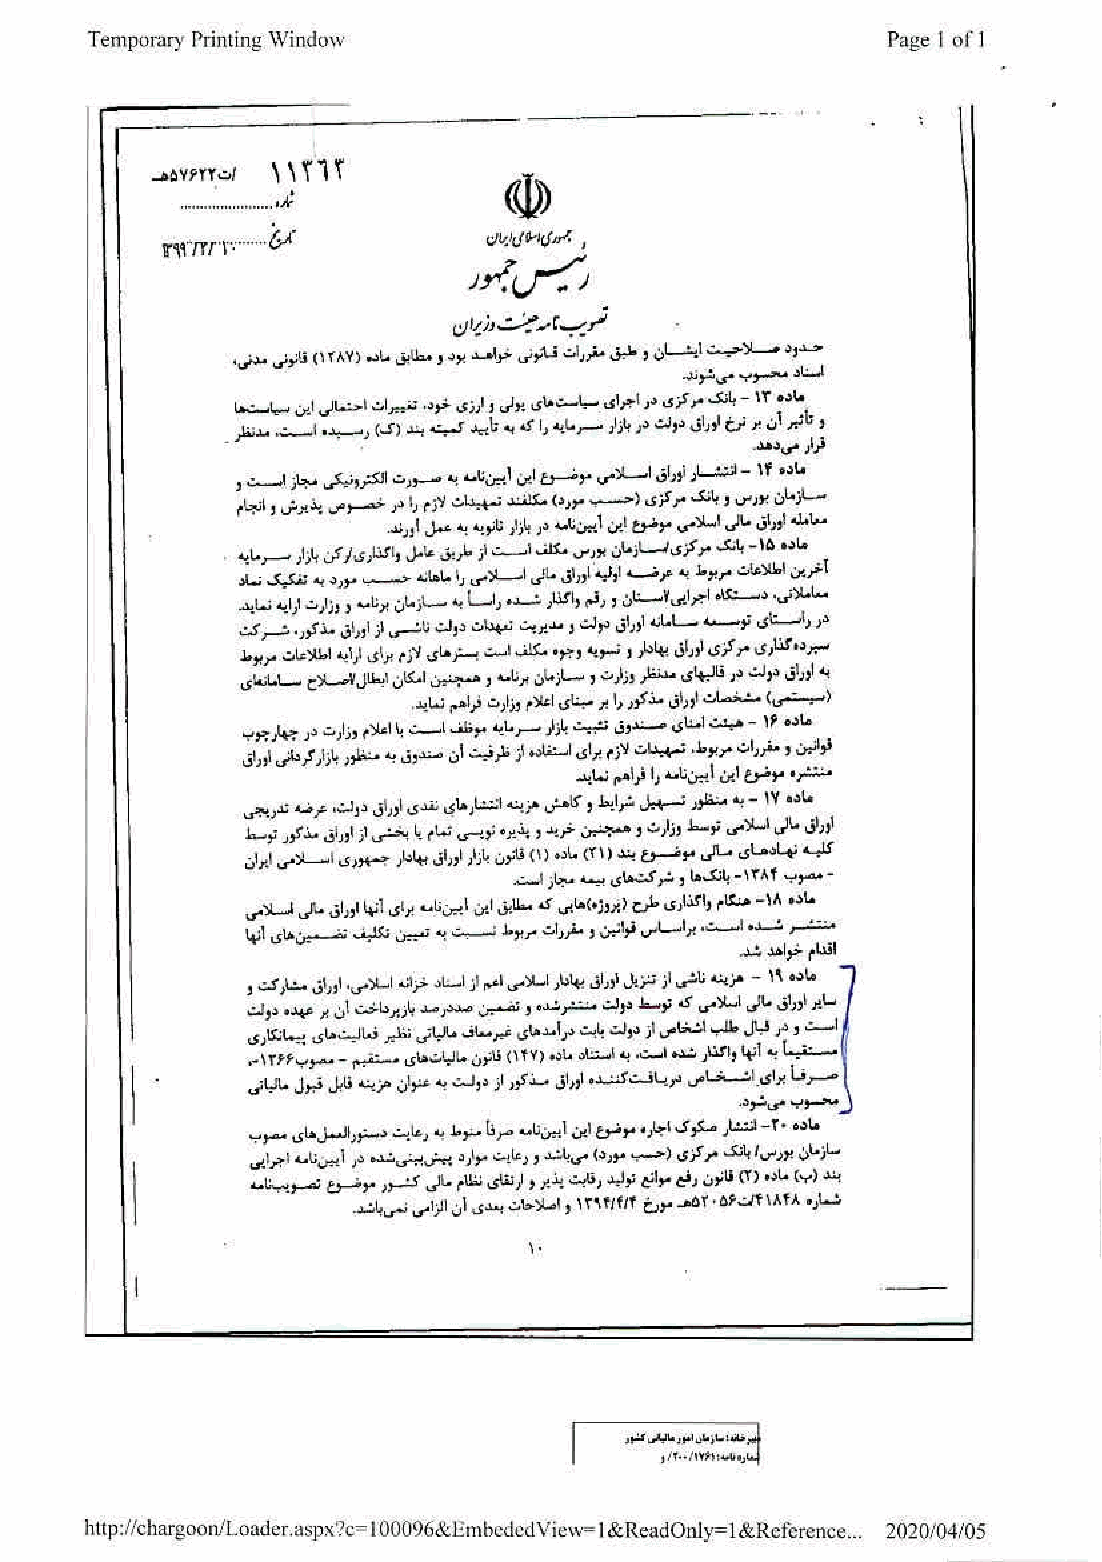 Temporary Printing Window
Page 1 of 1
۱۱۳۶۴ /ت۵۷۶۲۲هـ
شماره
تاریخ ۱۳۹۹/۲/۱۰
جمهوری اسلامی ایران
رئیس جمهور
تصویب نامه هیئت وزیران
حدود صلاحیت ایشان و طبق مقررات قانونی خواهد بود و مطابق ماده (۱۲۸۷) قانونی مدنی،
اسناد محسوب می‌شوند.
ماده ۱۳- بانک مرکزی در اجرای سیاست‌های پولی و ارزی خود، تغییرات احتمالی این سیاست‌ها
و تأثیر آن بر نرخ اوراق دولت در بازار سرمایه را که به تأیید کمیته بند (ک) رسیده است، مدنظر
قرار می‌دهد.
ماده ۱۴- انتشار اوراق اسلامی موضوع این آیین‌نامه به صورت الکترونیکی مجاز است و
سازمان بورس و بانک مرکزی (حسب مورد) مکلفند تمهیدات لازم را در خصوص پذیرش و انجام
معامله اوراق مالی اسلامی موضوع این آیین‌نامه در بازار ثانویه به عمل آورند.
ماده ۱۵- بانک مرکزی/سازمان بورس مکلف است از طریق عامل واگذاری/رکن بازار سرمایه
آخرین اطلاعات مربوط به عرضه اولیه اوراق مالی اسلامی را ماهانه حسب مورد به تفکیک نماد
معاملاتی، دستگاه اجرایی/استان و رقم واگذار شده، راساً به سازمان برنامه و وزارت ارایه نماید.
در راستای توسعه سامانه اوراق دولت و مدیریت تعهدات دولت ناشی از اوراق مذکور، شرکت
سپرده‌گذاری مرکزی اوراق بهادار و تسویه وجوه مکلف است بسترهای لازم برای ارایه اطلاعات مربوط
به اوراق دولت در قالبهای مدنظر وزارت و سازمان برنامه و همچنین امکان ابطال/اصلاح سامانه‌ای
(سیستمی) مشخصات اوراق مذکور را بر مبنای اعلام وزارت فراهم نماید.
ماده ۱۶- هیئت امنای صندوق تثبیت بازار سرمایه موظف است با اعلام وزارت در چهارچوب
قوانین و مقررات مربوط، تمهیدات لازم برای استفاده از ظرفیت آن صندوق به منظور بازارگردانی اوراق
منتشره موضوع این آیین‌نامه را فراهم نماید.
ماده ۱۷- به منظور تسهیل شرایط و کاهش هزینه انتشارهای نقدی اوراق دولت، عرضه تدریجی
اوراق مالی اسلامی توسط وزارت و همچنین خرید و پذیره نویسی تمام یا بخشی از اوراق مذکور توسط
کلیه نهادهای مالی موضوع بند (۲۱) ماده (۱) قانون بازار اوراق بهادار جمهوری اسلامی ایران
- مصوب ۱۳۸۴- بانک‌ها و شرکت‌های بیمه مجاز است.
ماده ۱۸- هنگام واگذاری طرح (پروژه)هایی که مطابق این آیین‌نامه برای آنها اوراق مالی اسلامی
منتشر شده است، براساس قوانین و مقررات مربوط نسبت به تعیین تکلیف تضمین‌های آنها
اقدام خواهد شد.
ماده ۱۹- هزینه ناشی از تنزیل اوراق بهادار اسلامی اعم از اسناد خزانه اسلامی، اوراق مشارکت و
سایر اوراق مالی اسلامی که توسط دولت منتشرشده و تضمین صددرصد بازپرداخت آن بر عهده دولت
است و در قبال طلب اشخاص از دولت بابت درآمدهای غیرمعاف مالیاتی نظیر فعالیت‌های پیمانکاری
مستقیماً به آنها واگذار شده است، به استناد ماده (۱۴۷) قانون مالیات‌های مستقیم - مصوب ۱۳۶۶-
صرفاً برای اشخاص دریافت‌کننده اوراق مذکور از دولت به عنوان هزینه قابل قبول مالیاتی
محسوب می‌شود.
ماده ۲۰- انتشار صکوک اجاره موضوع این آیین‌نامه صرفاً منوط به رعایت دستورالعمل‌های مصوب
سازمان بورس/ بانک مرکزی (حسب مورد) می‌باشد و رعایت موارد پیش‌بینی‌شده در آیین‌نامه اجرایی
بند (ب) ماده (۳) قانون رفع موانع تولید رقابت پذیر و ارتقای نظام مالی کشور موضوع تصویب‌نامه
شماره ۴۱۸۴۸/ت۵۲۰۵۶هـ مورخ ۱۳۹۴/۴/۴ و اصلاحات بعدی آن الزامی نمی‌باشد.
۱۰
دبیرخانه: سازمان امور مالیاتی کشور
شماره نامه: ۲۰۰/۱۷۶۱/ و
http://chargoon/Loader.aspx?c=100096&EmbededView=1&ReadOnly=1&Reference...
2020/04/05